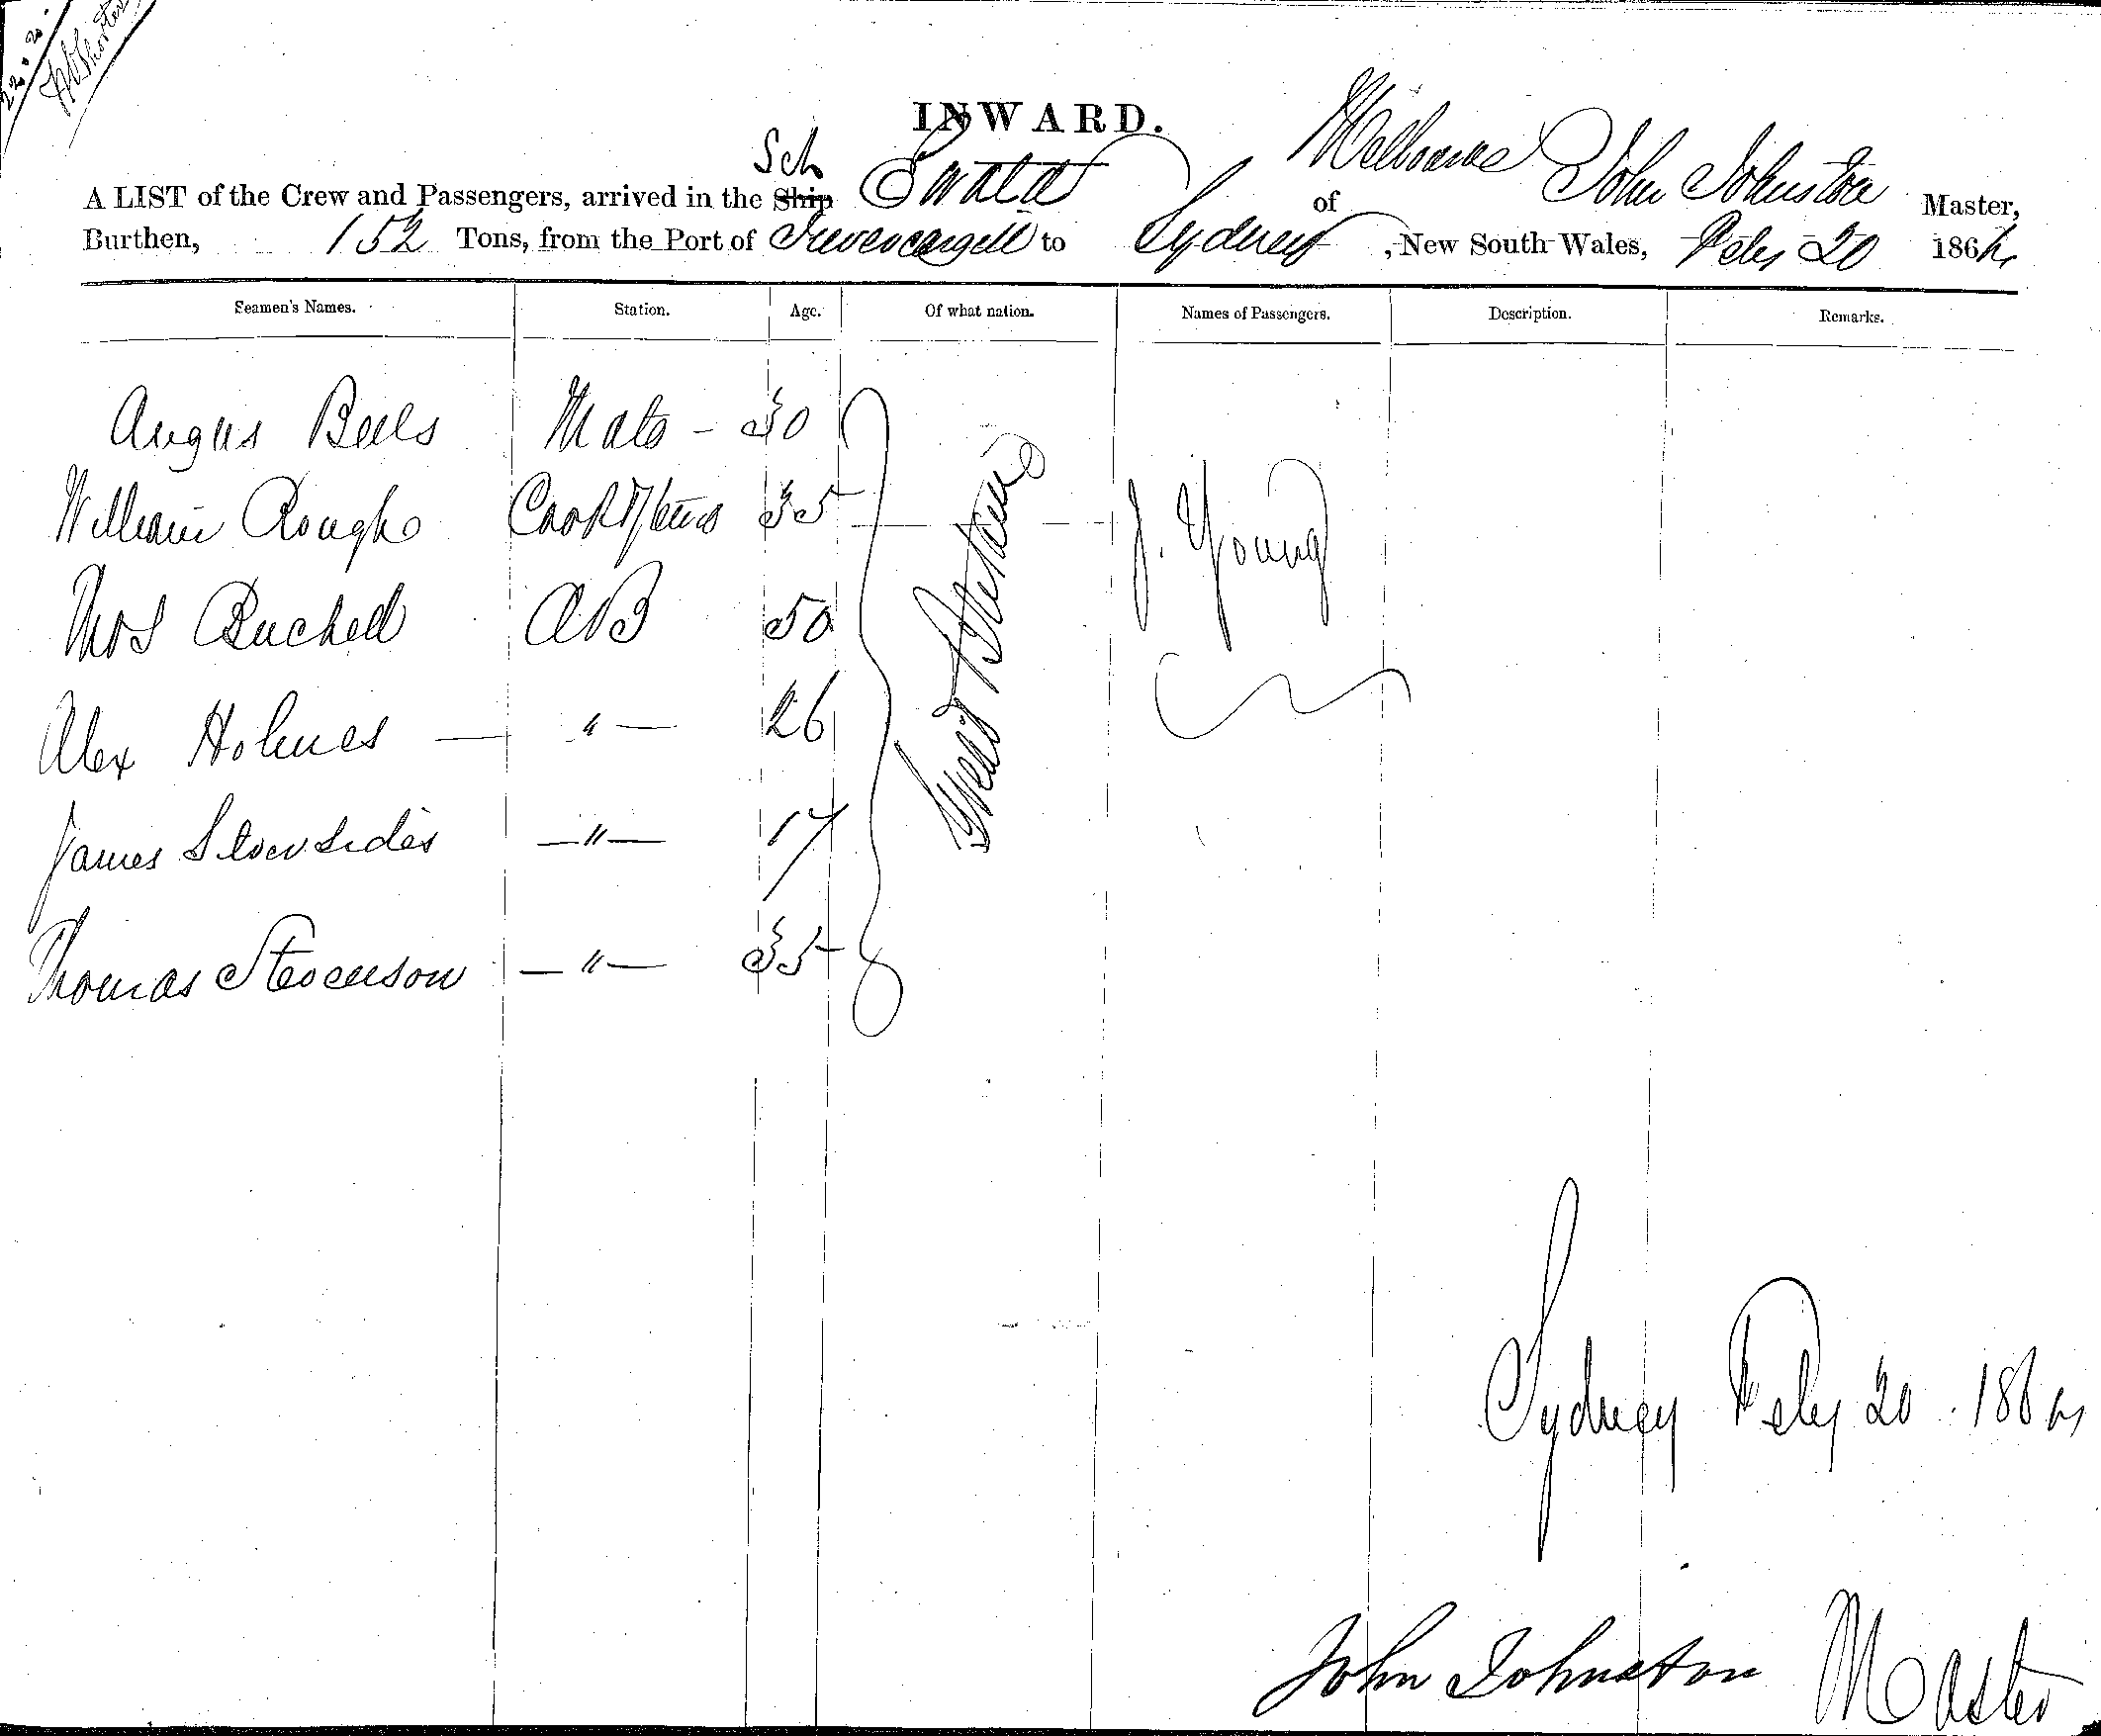 INWARD.
Sch
A LIST of the Crew and Passengers, arrived in the Ship Ewald of Melbourne John Johnston Master,
Burthen, 152 Tons, from the Port of Invercargill to Sydney, New South Wales, Feby 20 1864
Seamen's Names. Station. Age. Of what nation. Names of Passengers. Description. Remarks.
Angus Beels Mate - 30
William Rough Cook 35 J. Young
Thos Buchell AB 50
Great Britain
Alex Holmes — " — 26
James —"— 17
Thomas Stevenson —"— 35
Sydney Feby 20. 1864
John Johnston Master